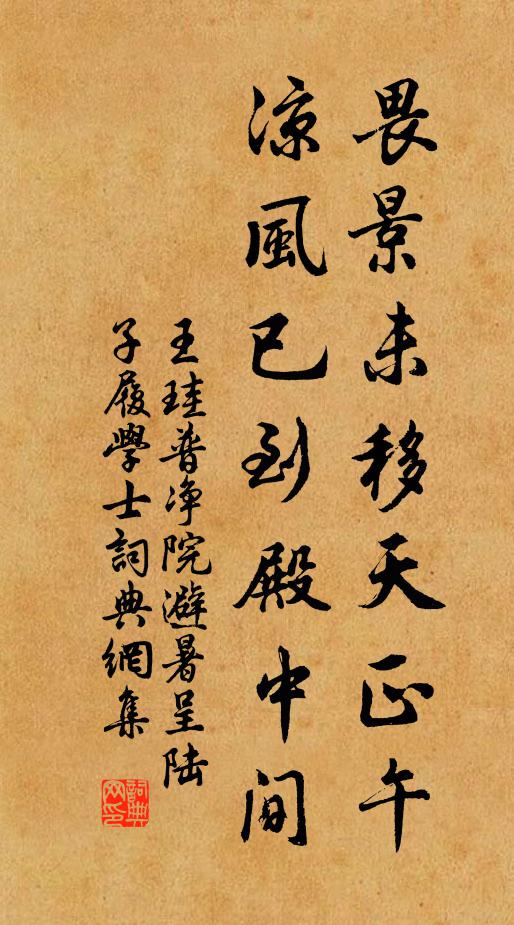 畏景未移天正午
凉風已到殿中间
王珪普净院避暑呈陆
子履學士詞典網集
詞典
网印